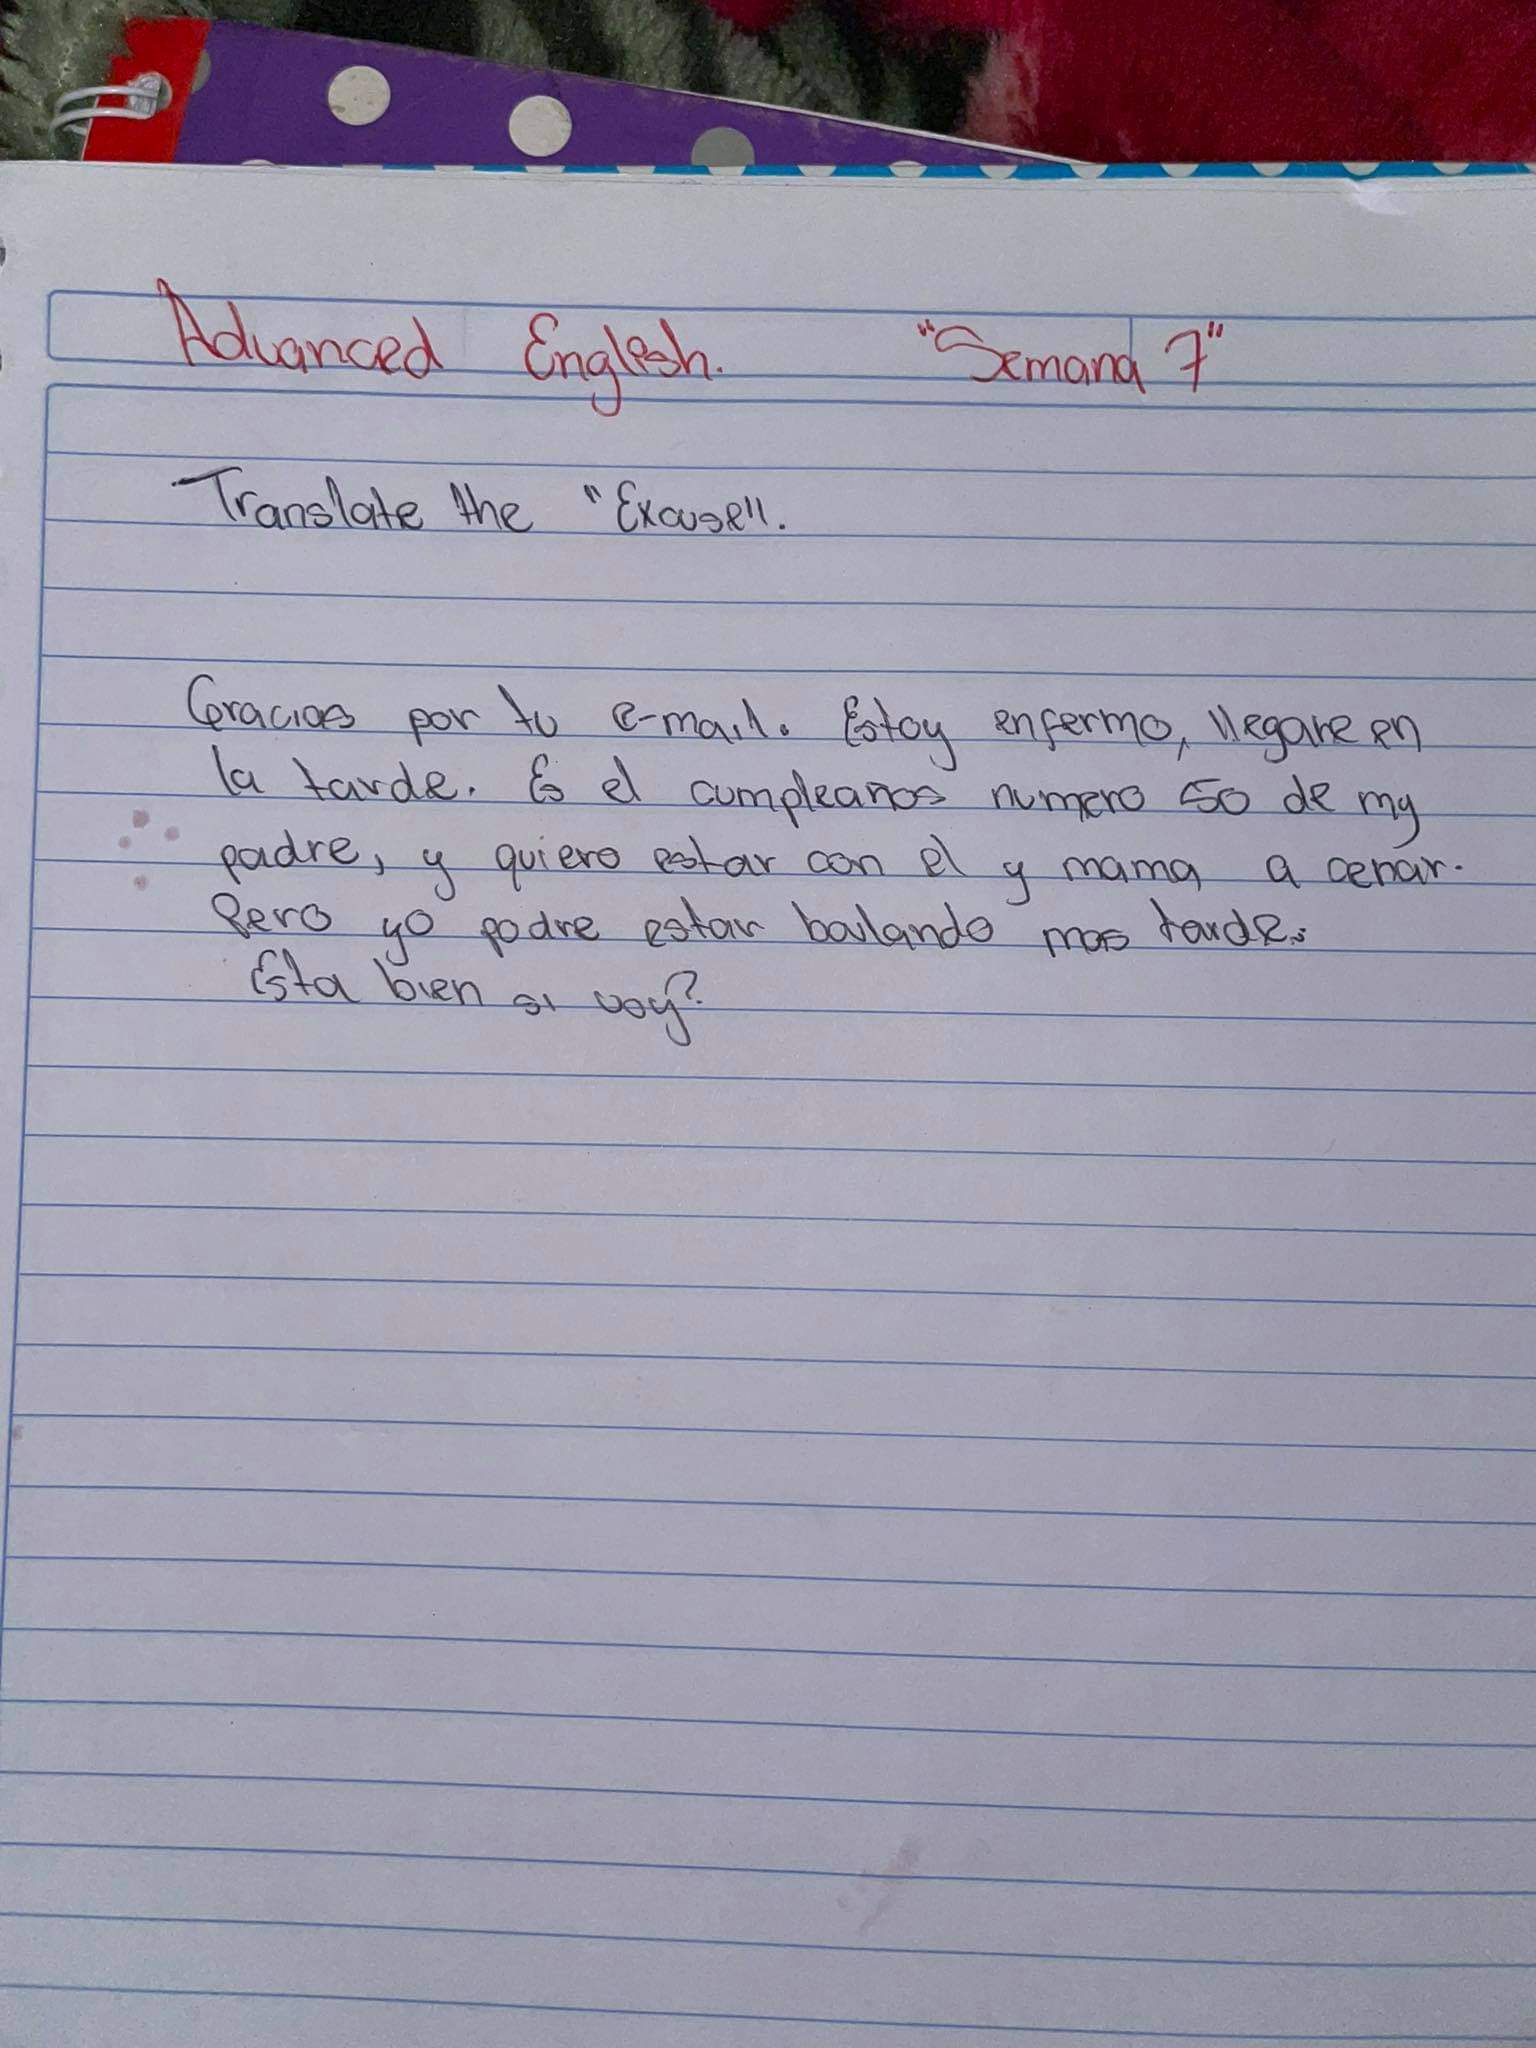 Advanced English. "Semana 7"
Translate the "Excuse".
Gracias por tu e-mail. Estoy enfermo, llegare en
la tarde. Es el cumpleanos numero 50 de my
padre, y quiero estar con el y mama a cenar.
Pero yo podre estar bailando mas tarde.
Esta bien si voy?